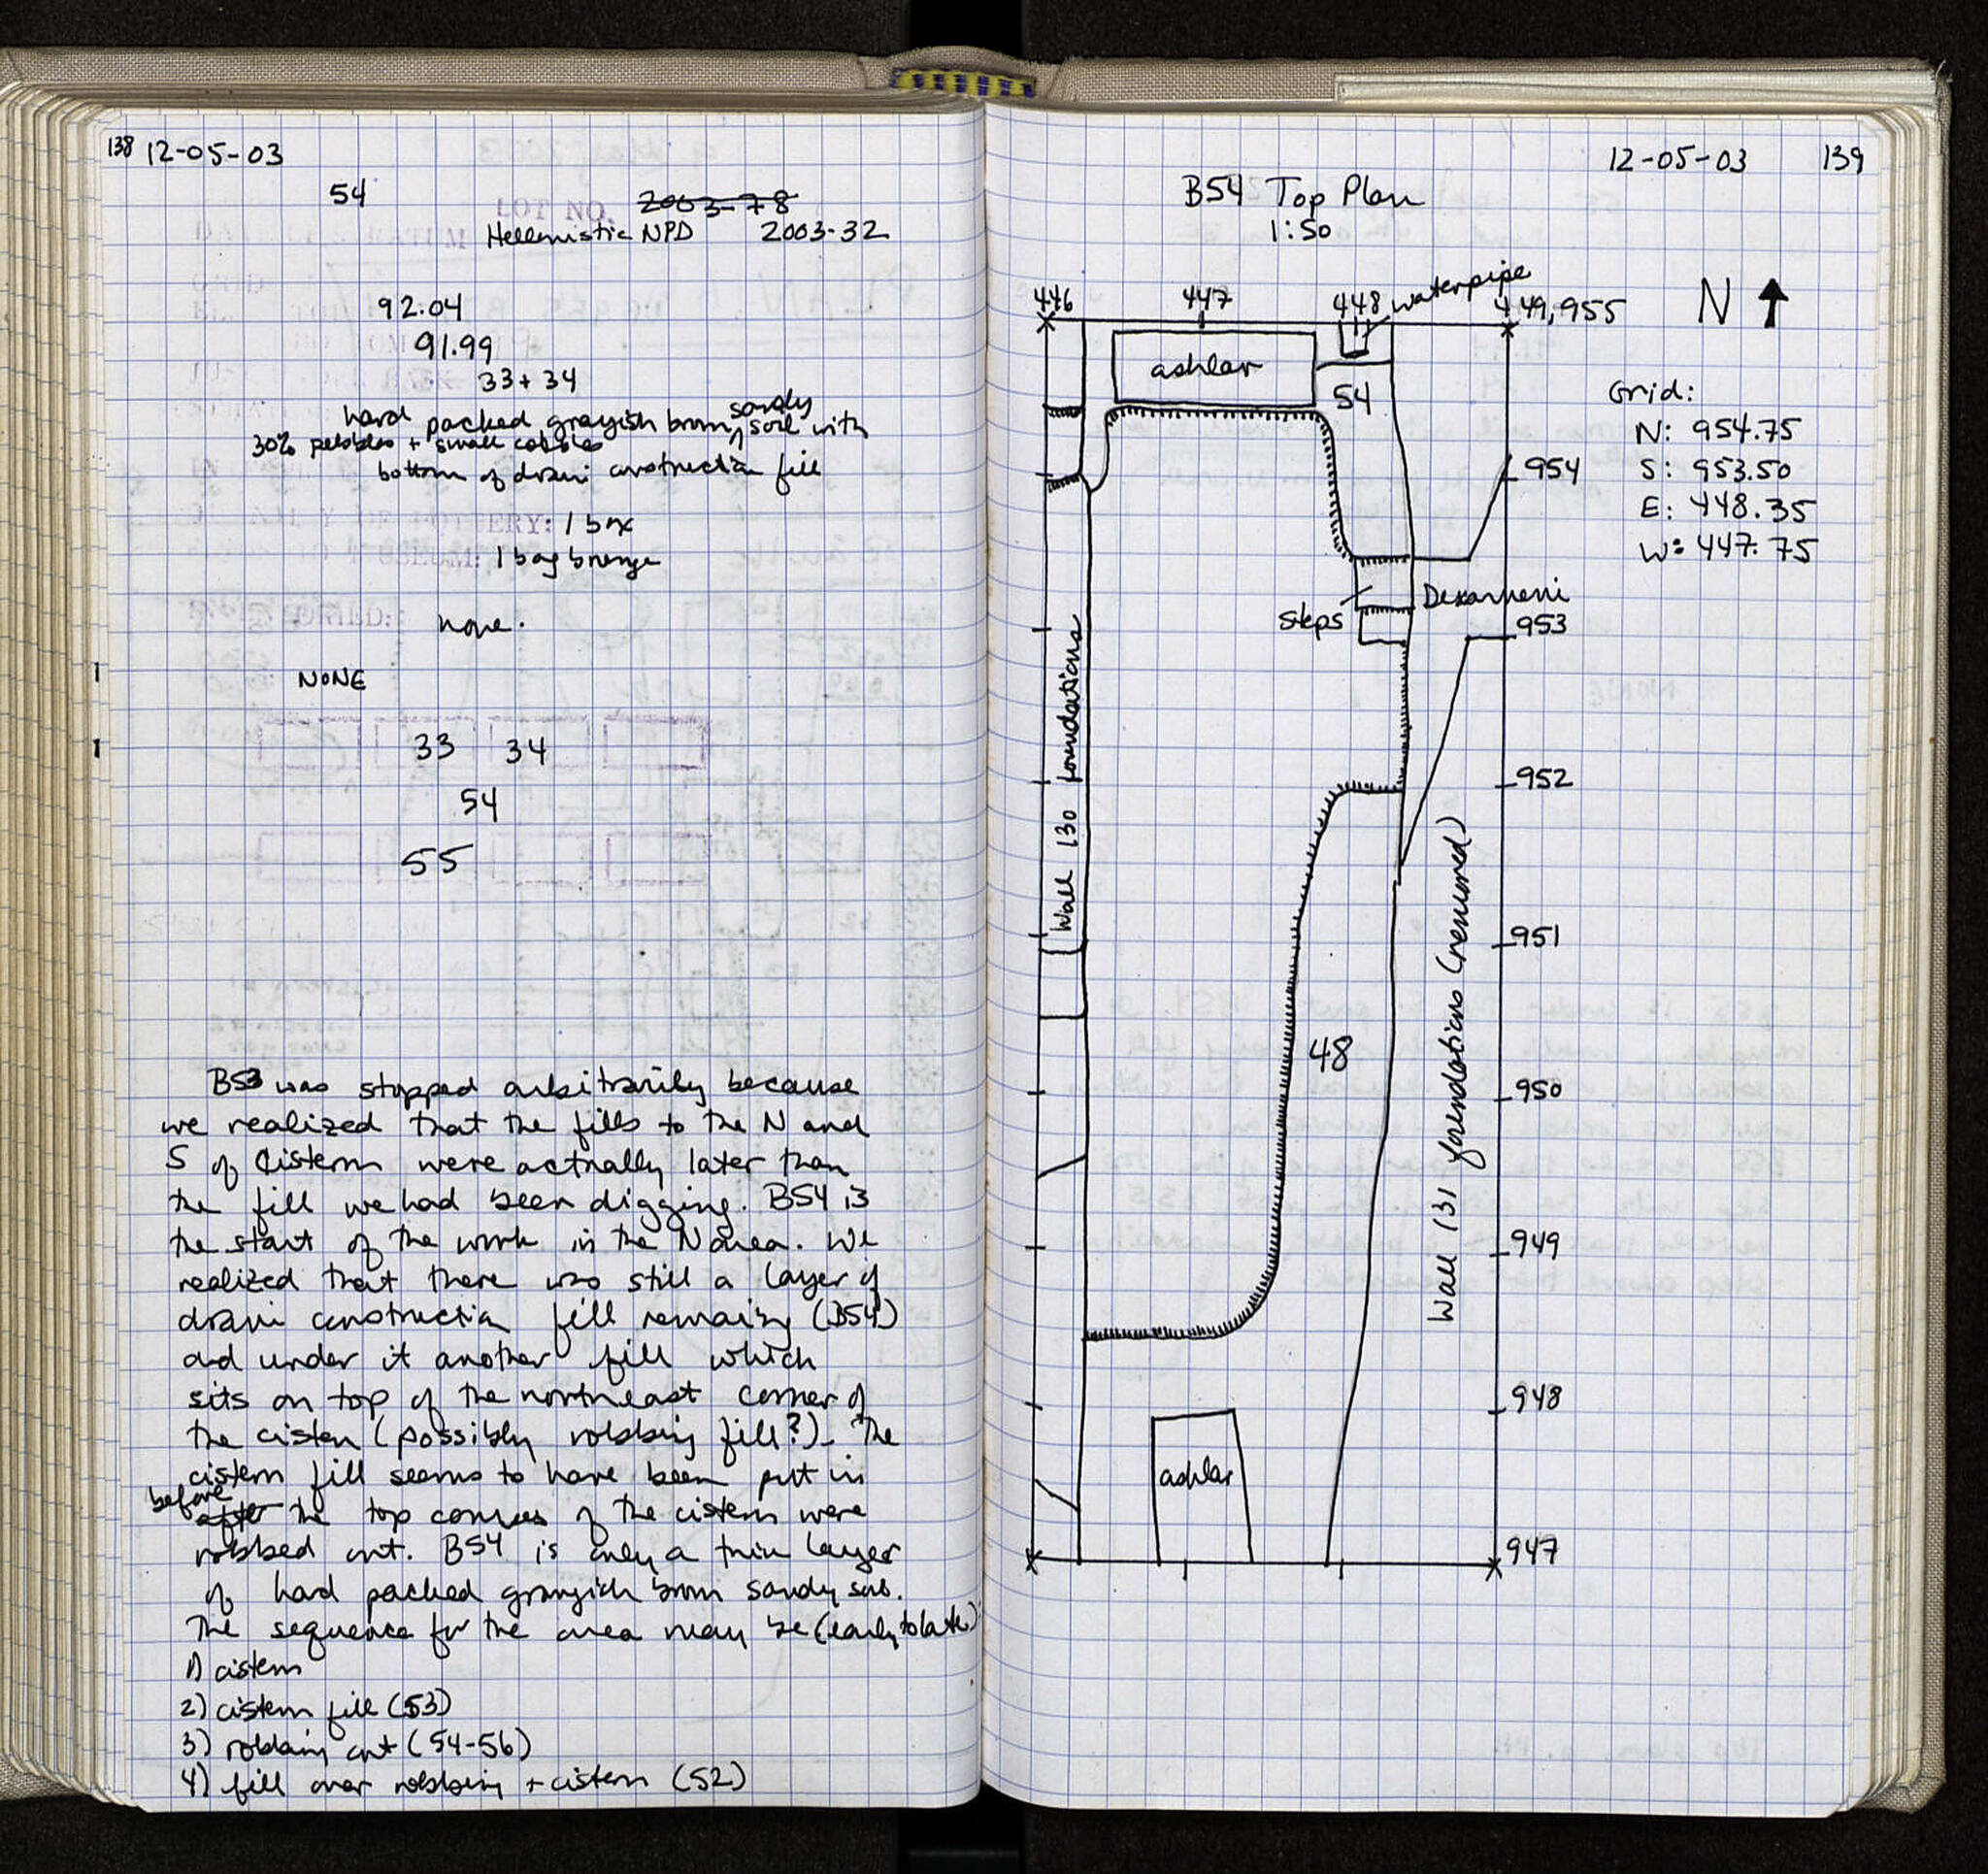 138 12-05-03
54
LOT NO. 2003-78
Hellenistic NPD 2003-32
92.04
91.99
33 + 34
hard packed grayish brown sandy soil with
30% pebbles + small cobbles
bottom of drain construction fill
POTTERY: 1 box
1 bag bronze
none.
1 NONE
1 33 34
54
55
B53 was stopped arbitrarily because
we realized that the fills to the N and
S of cistern were actually later than
the fill we had been digging. B54 is
the start of the work in the N area. We
realized that there was still a layer of
drain construction fill remaining (B54)
and under it another fill which
sits on top of the northeast corner of
the cistern (possibly robbing fill?). The
cistern fill seems to have been put in
before after the top courses of the cistern were
robbed out. B54 is only a thin layer
of hard packed grayish brown sandy soil.
The sequence for the area may be (early to late)
1) cistern
2) cistern fill (53)
3) robbing cut (54-56)
4) fill over robbing + cistern (52)
12-05-03 139
B54 Top Plan
1:50
446 447 448 waterpipe 449,955
N
ashlar
54
Grid:
N: 954.75
S: 953.50
E: 448.35
W: 447.75
954
Dexameni
steps
953
Wall 130 foundations
952
951
48
950
Wall 131 foundations (removed)
949
948
ashlar
947